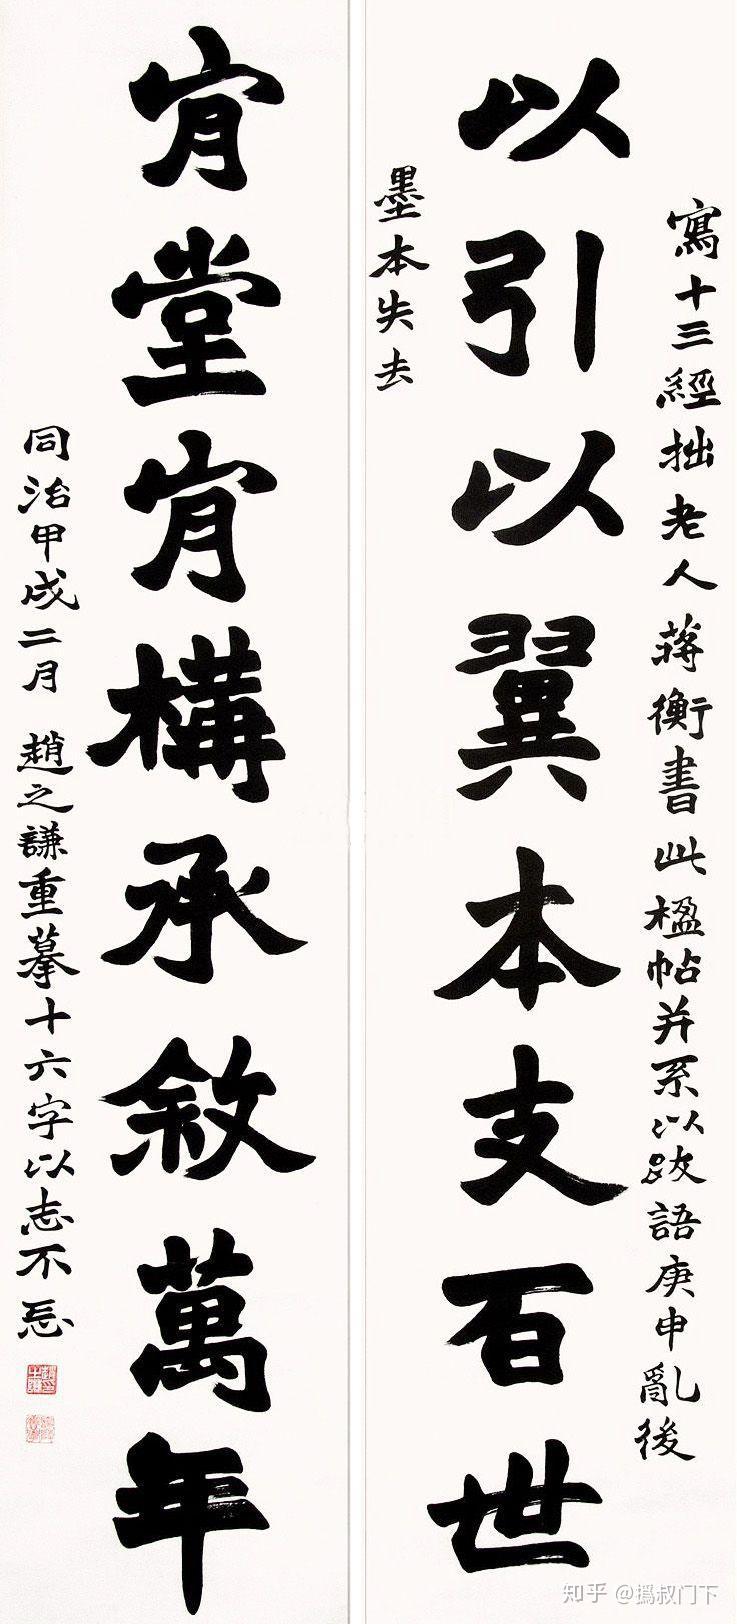 寫十三經拙老人蔣衡書此楹帖并系以跋語庚申亂後
以引以翼本支百世
墨本失去
肎堂肎構承敘萬年
同治甲戌二月 趙之謙重摹十六字以志不忘
知乎 @撝叔门下